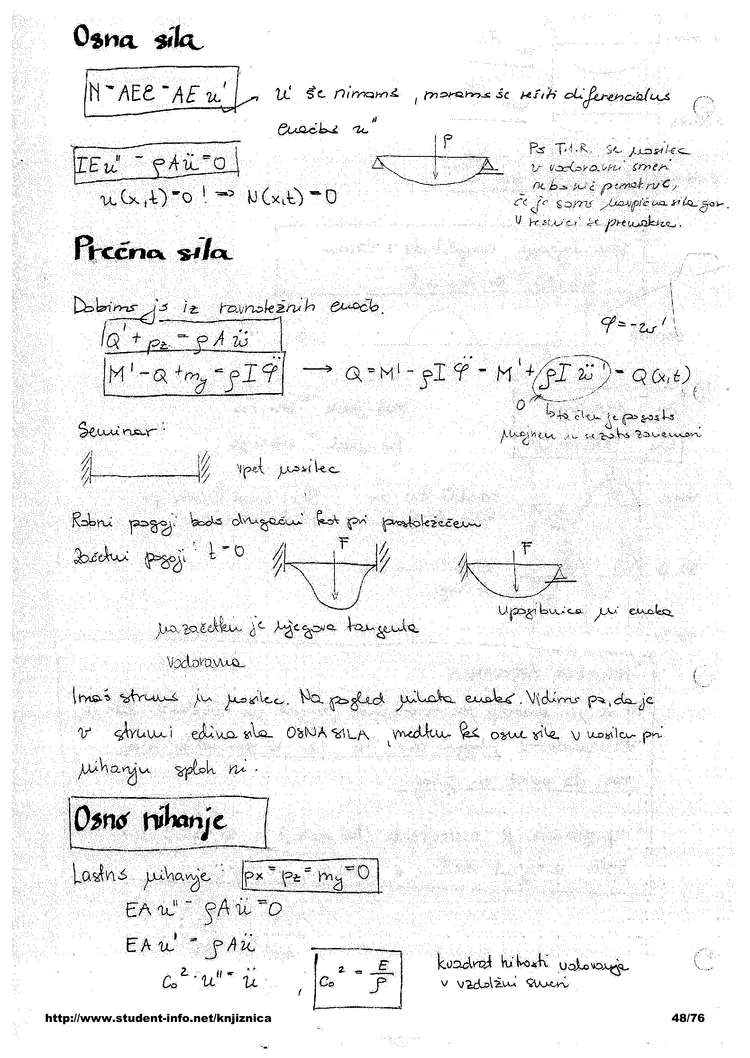 Osna sila
N = AEε = AE u'
u' še nimamo, moramo še rešiti diferencialno
enačbo u''
IEu'' - ρAü = 0
u(x,t) = 0 ! ⇒ N(x,t) = 0
P
Po T.I.R. se nosilec
v vodoravni smeri
ne bo nič premaknil,
če je samo navpična sila gor.
V resnici se premakne.
Prečna sila
Dobimo jo iz ravnotežnih enačb.
Q' + pz = ρAẅ
φ = -w'
M' - Q + my = ρIφ̈ → Q = M' - ρIφ̈ = M' + ρIẅ' = Q(x,t)
0 ta člen je pogosto
majhen in se zato zanemari
Seminar:
vpet nosilec
Robni pogoji bodo drugačni kot pri prostoležečem
Začetni pogoji: t = 0
F
F
Upogibnica ni enaka
na začetku je njegova tangenta
vodoravna
Imaš struno in nosilec. Na pogled nihata enako. Vidimo pa, da je
v struni edina sila OSNA SILA, medtem ko osne sile v nosilcu pri
nihanju sploh ni.
Osno nihanje
Lastno nihanje: px = pz = my = 0
EAu'' - ρAü = 0
EAu' = ρAü
c₀² · u'' = ü , c₀² = E/ρ
kvadrat hitrosti valovanja
v vzdolžni smeri
http://www.student-info.net/knjiznica
48/76